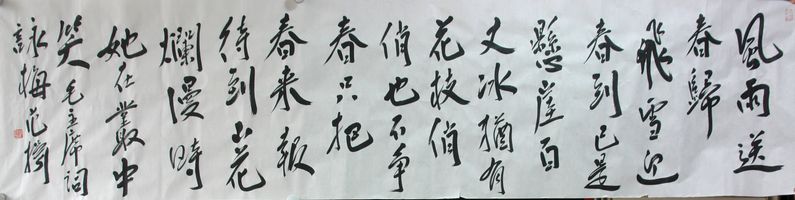 風雨送
春歸
飛雪迎
春到已是
懸崖百
丈冰猶有
花枝俏
俏也不争
春只把
春来報
待到山花
爛漫時
她在叢中
笑毛主席詞
詠梅